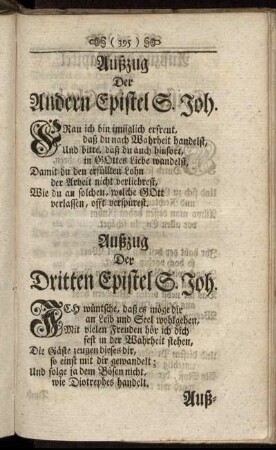 ( 395 )
Außzug
Der
Andern Epistel S. Joh.
FRau ich bin inniglich erfreut,
daß du nach Wahrheit handelst,
Und bitte, daß du auch hinfort,
in GOttes Liebe wandelst,
Damit du den erfüllten Lohn
der Arbeit nicht verliehrest,
Wie du an solchen, welche GOtt
verlassen, offt verspürest.
Außzug
Der
Dritten Epistel S. Joh.
ICH wünsche, daß es möge dir
an Leib und Seel wohlgehen,
Mit vielen Freuden hör ich dich
fest in der Wahrheit stehen,
Die Gäste zeugen dieses dir,
so einst mit dir gewandelt;
Und folge ja dem Bösen nicht,
wie Diotrephes handelt.
Auß-